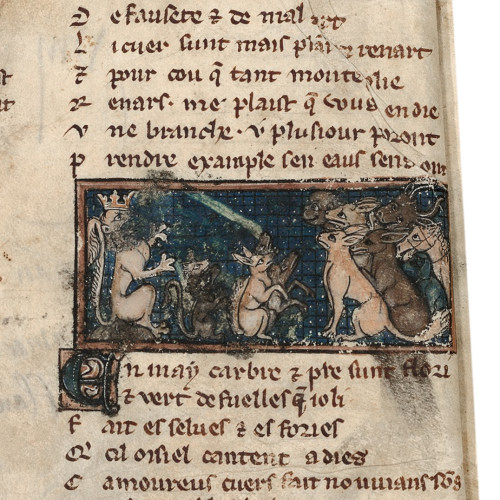 D e fausete & de mal art
L i cuer sunt mais plain renart
& pour cou q̃ tant monteplie
R enars. me plaist q̃ vous en die
V ne branche. v plusiour poront
P rendre example sen eaus sens ont
En may carbre & pre sunt flori
& vert de fuelles q̃ ioli
F ait es selves & es fories
Q cil oisiel cantent a dies
C amoureus cuers fait nouvians sõs